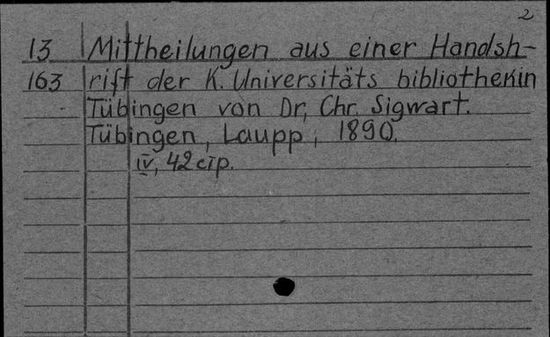 2
13 Mittheilungen aus einer Handsh-
163 rift der K. Universitäts bibliothekin
Tübingen von Dr, Chr. Sigwart.
Tübingen, Laupp, 1890.
IV, 42 стр.